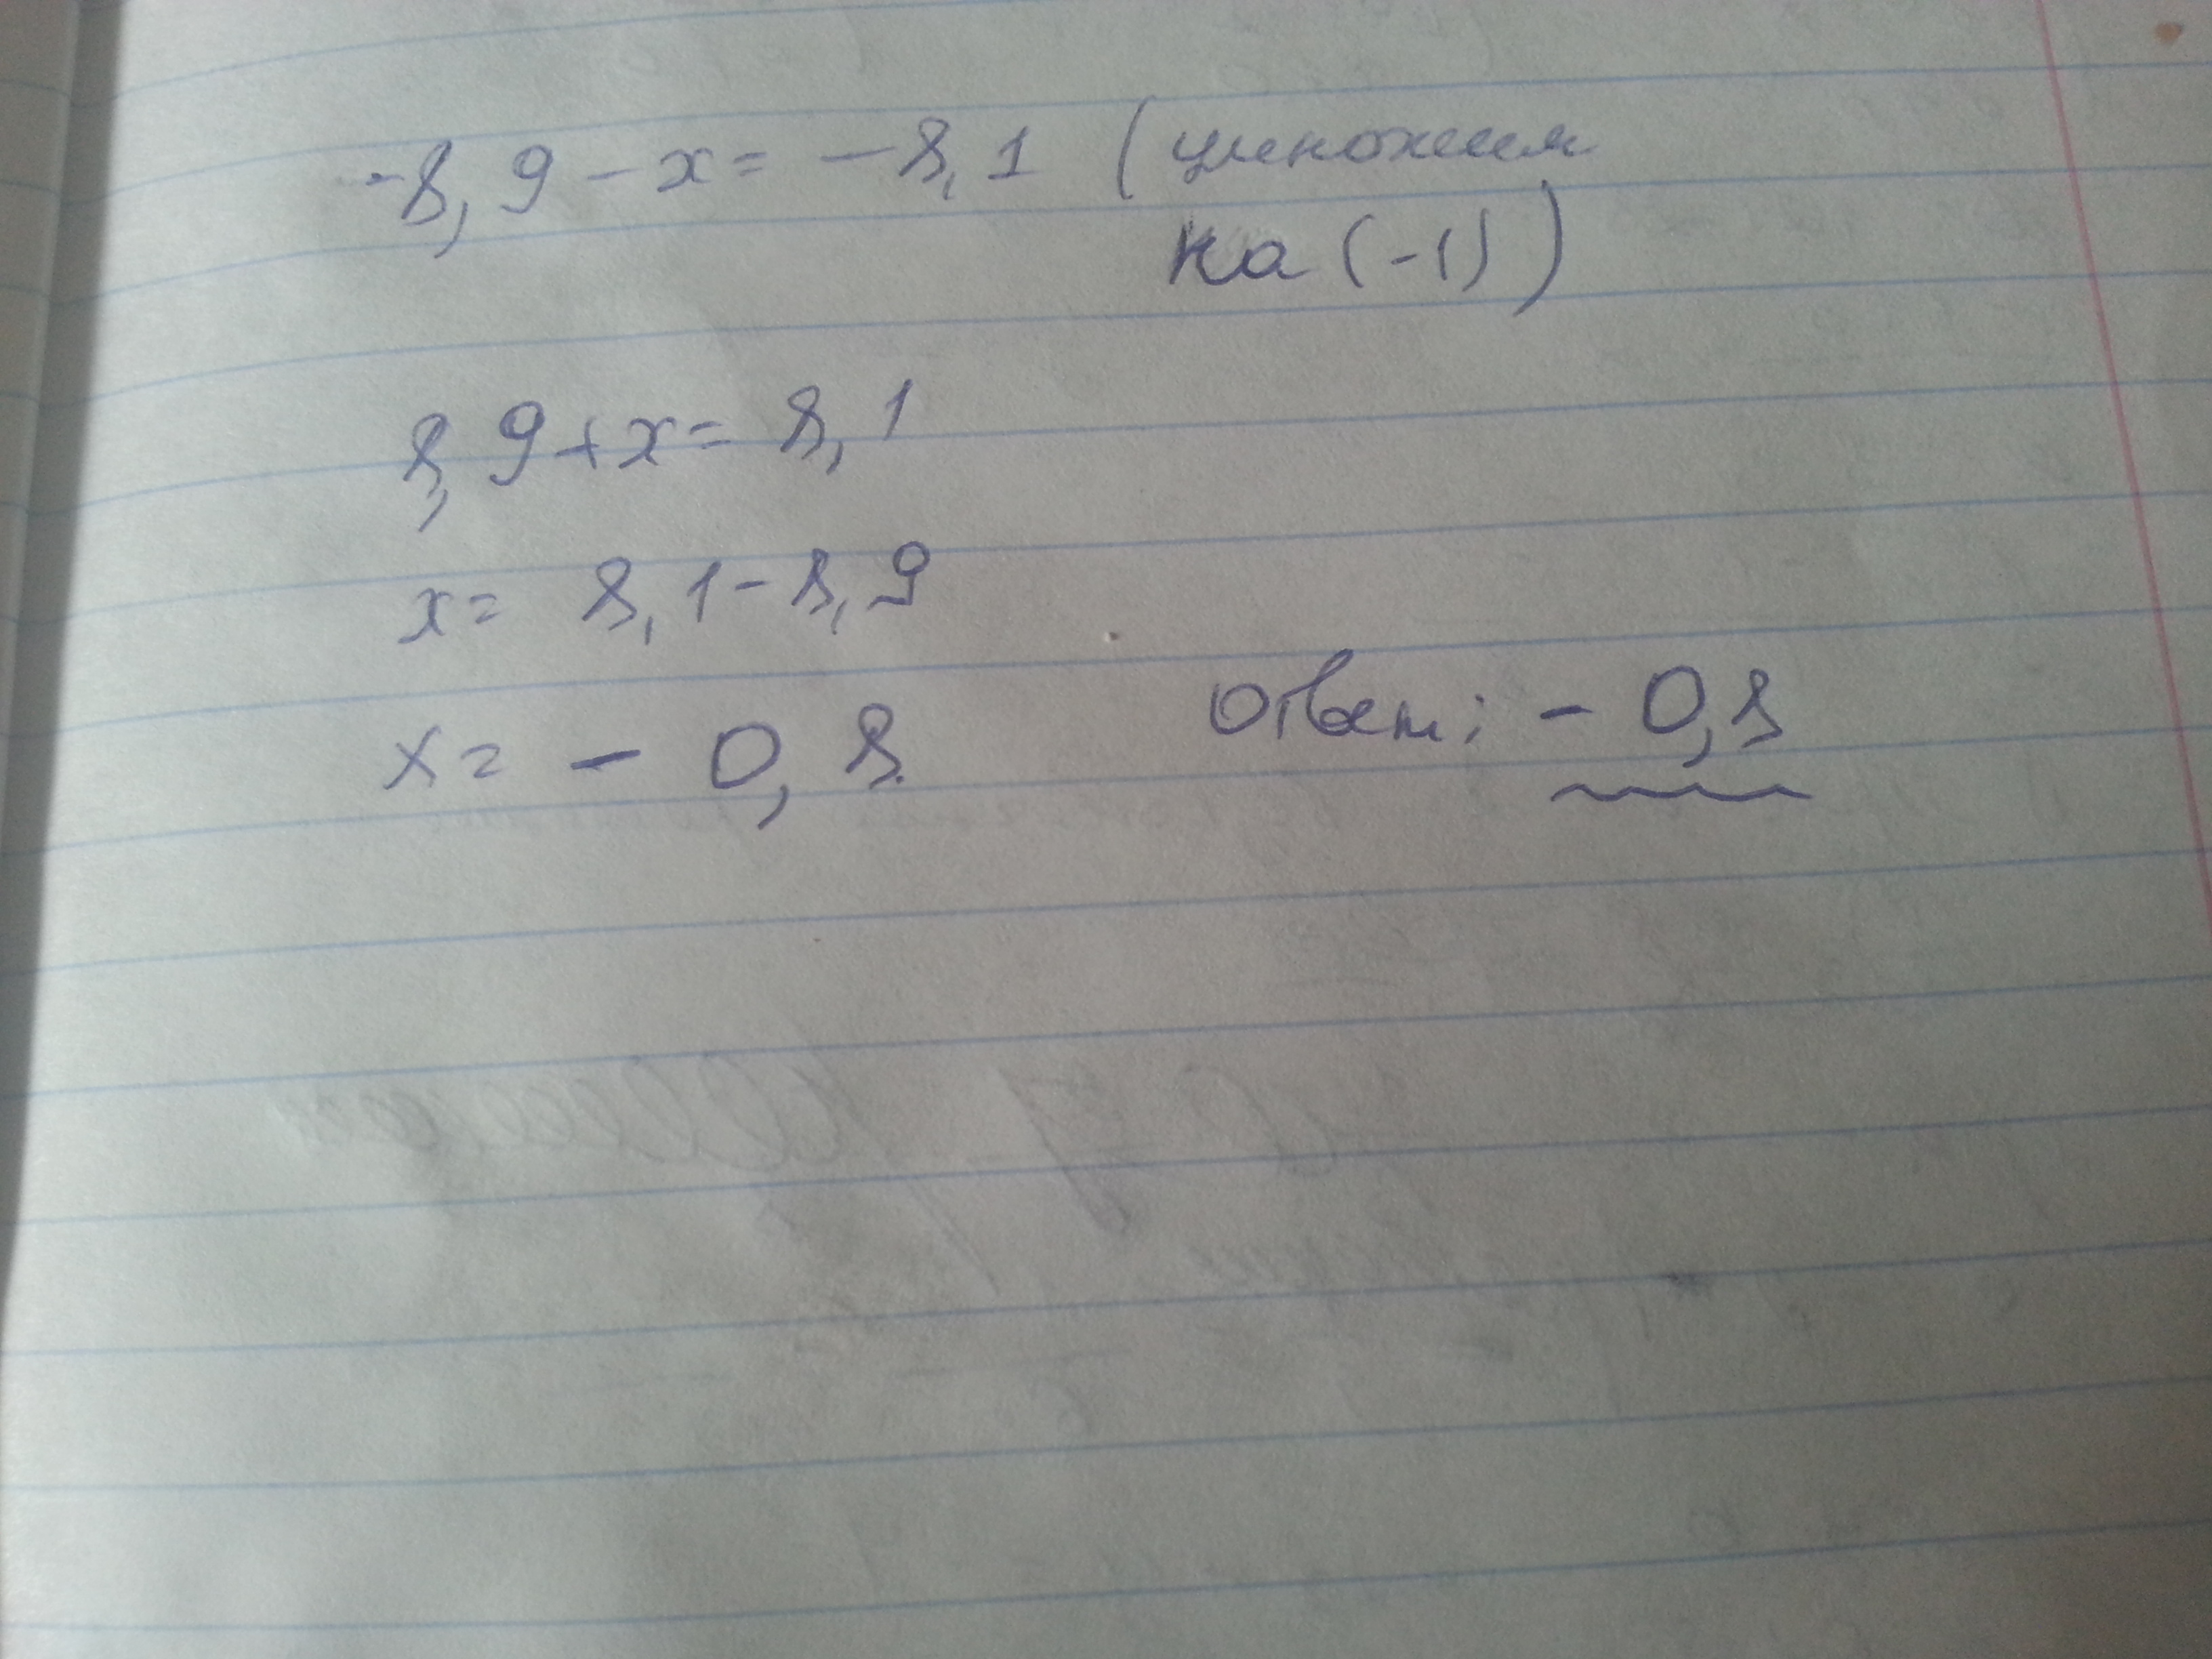 -8,9-x=-8,1 (умножим
на (-1))
8,9+x=8,1
x= 8,1-8,9
x= - 0,8. Ответ: - 0,8